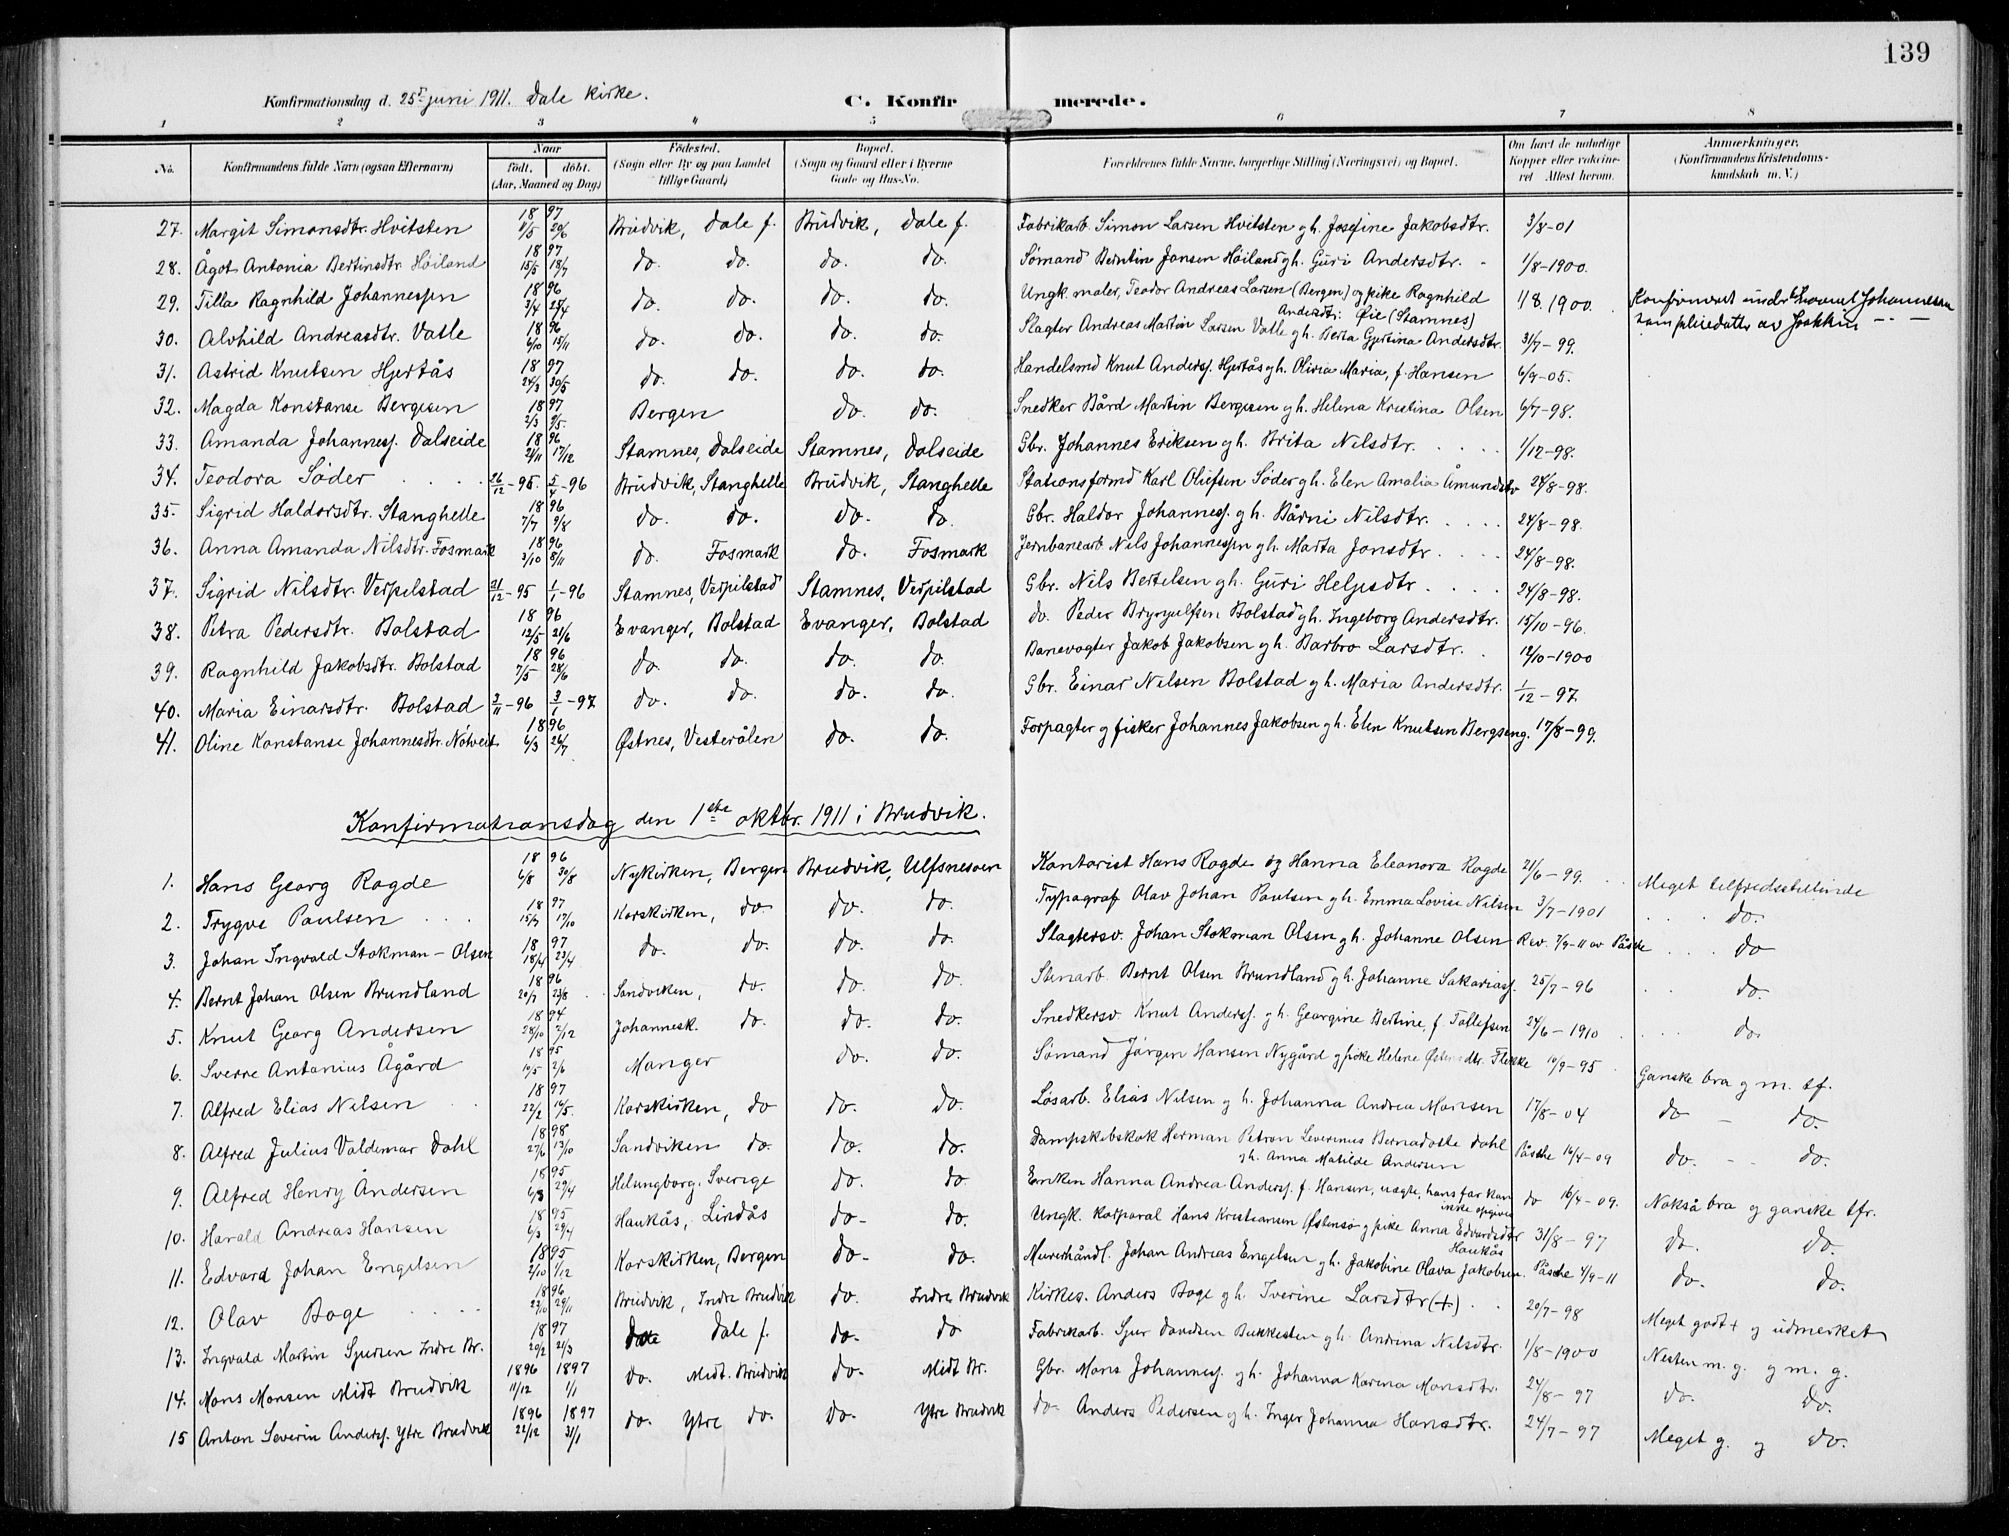 139
Konfirmationsdag d. 25de juni 1911. Dale kirke. C. Konfirmerede.
1 2 3 4 5 6 7 8
No. Konfirmandens fulde Navn (ogsaa Efternavn) Naar født. døbt. (Aar, Maaned og Dag) Fødested. (Sogn eller By og paa Landet tillige Gaard) Bopæl. (Sogn og Gaard eller i Byerne Gade og Hus-No. Forældrenes fulde Navne, borgerlige Stilling (Næringsvei) og Bopæl. Om havt de naturlige Kopper eller vaccineret. Attest herom. Anmærkninger. (Konfirmandens Kristendomskundskab m. V.)
27. Margit Simonsdtr. Hvitsten 1897 11/5 20/6 Brudvik, Dale f. Brudvik, Dale f. Fabrikarb. Simon Larsen Hvitsten g h. Josefine Jakobsdtr. 3/8-01
28. Ågot Antonia Bertinsdtr. Höiland 1897 15/5 18/7 do. do. do. do. Sømand Berntin Jansen Höiland g h. Guri Andersdtr. 1/8-1900.
29. Tilla Ragnhild Johannessen 1896 3/4 28/4 do. do. do. do. Ungk. maler, Teodor Andreas Larsen (Bergen) og pike Ragnhild Andersdtr. Øie (Stamnes) 1/8 1900. Konfirmeret under navnet Johannesen som pleiedatter av Joakkin
30. Alvhild Andreasdtr. Vatle 1896 6/10 15/11 do. do. do. do. Slagter Andreas Martin Larsen Vatle g h. Berta Gjertina Andersdtr. 31/7-99.
31. Astrid Knutsen Hjertås 1897 24/3 30/5 do. do. do. do. Handelsmd Knut Anderss. Hjertås g h. Olivia Maria, f. Hansen 6/9-05.
32. Magda Konstanse Bergesen 1897 2/3 9/5. Bergen do. do. Snedker Bård Martin Bergesen g h. Helena Kristina Olsen 6/7-98.
33. Amanda Johanness. Dalseide 1896 21/11 17/12 Stamnes, Dalseide Stamnes, Dalseide Gbr. Johannes Eriksen g h. Brita Nilsdtr. 1/12-98.
34. Teodora Söder 26/12-95. 5/4-96 Brudvik, Stanghelle Brudvik, Stanghelle Stationsformd Karl Olufsen Söder g h. Elen Amalia Åmundsdtr 24/8-98.
35. Sigrid Haldorsdtr. Stanghelle 1896 7/7 9/8 do. do. do. do. Gbr. Haldor Johanness. g h. Bårni Nilsdtr. 24/8-98.
36. Anna Amanda Nilsdtr. Fosmark 1896 3/10 8/11 do. Fosmark do. Fosmark Jernbanearb Nils Johannessen g h. Marta Jonsdtr. 24/8-98.
37. Sigrid Nilsdtr. Verpilstad 21/12-95 1/1-96 Stamnes, Verpilstad Stamnes, Verpilstad Gbr. Nils Bertelsen g h. Guri Helgesdtr. 24/8-98.
38. Petra Pedersdtr. Bolstad 1896 12/5 21/6 Evanger, Bolstad Evanger, Bolstad do. Peder Brynjulfsen Bolstad g h. Ingeborg Andersdtr. 15/10-96.
39. Ragnhild Jakobsdtr. Bolstad 1896 7/5 28/6 do. do. do. do. Banevogter Jakob Jakobsen g h. Barbro Larsdtr. 12/10-1900
40. Maria Einarsdtr. Bolstad 3/11-96 3/1-97 do. do. do. do. Gbr. Einar Nilsen Bolstad g h. Maria Andersdtr. 1/12-97.
41. Oline Konstanse Johannesdtr. Nötveit 1896 6/3 26/7 Østnes, Vesterålen do. do. Forpagter g fisker Johannes Jakobsen g h. Elen Knutsen Bergseng. 17/8-99.
Konfirmationsdag den 1ste oktbr. 1911 i Brudvik.
1. Hans Georg Rogde 1896 6/8 30/8 Nykirken, Bergen Brudvik, Ulfsnesøen Kontorist Hans Rogde og Hanna Eleonora Rogde 21/6-99. Meget tilfredsstillende
2. Trygve Paulsen 1897 15/7 17/10 Korskirken, do. do. do. Typograf Olav Johan Paulsen g h. Emma Lovise Nilsen 3/7-1901 do.
3. Johan Ingvald Stokman-Olsen 1897 18/4 23/4 do. do. do. do. Slagtersv. Johan Stokman Olsen g h. Johanne Olsen Rev. 7/9-11 av Påsche do
4. Bernt Johan Olsen Brundland 1896 20/7 23/8 Sandviken, do. do. do. Stenarb. Bernt Olsen Brundland g h. Johanne Sakariass. 25/7-96 do.
5. Knut Georg Andersen 1894 28/10 2/12 Johannesk. do. do. do. Snedkersv. Knut Anderss. g h. Georgine Bertine, f. Tollefsen 24/6-1910 do.
6. Sverre Antonius Ågård 1895 10/5 2/6 Manger do. do. Sømand Jörgen Hansen Nygård g pike Helene Østensdtr. Flekke 10/9-95 Ganske bra g m. tf.
7. Alfred Elias Nilsen 1897 22/2 16/5. Korskirken, do do. do. Løsarb. Elias Nilsen g h. Johanna Andrea Monsen 17/8-04 do - do.
8. Alfred Julius Valdemar Dahl 1898 27/6 13/10 Sandviken do. do. do. Dampskibskok Herman Petron Leverinus Bernadotte Dahl g h. Anna Matilde Andersen Påsche 16/4-09 do. -- do.
9. Alfred Henry Andersen 1895 6/3 29/4 Helsingborg. Sverige do. do Enken Hanna Andrea Anderss. f. Hansen, uægte, hans far kan ikke opgives do 16/4-09. Nokså bra g ganske tfr.
10. Harald Andreas Hansen 1895 6/3 29/4 Haukås, Lindås do- do. Ungk. korporal Hans Kristiansen Østensø g pike Anna Edvardsdtr Haukås 31/8-97 do. do.
11. Edvard Johan Engelsen 1895 2/10 1/12 Korskirken, Bergen do- do. Murerhåndl. Johan Andreas Engelsen g h. Jakobine Olava Jakobsen. Påsche 4/9-11 do. do.
12. Olav Boge 1896 23/10 29/11 Brudvik, Indre Brudvik do. Indre Brudvik Kirkes. Anders Boge g h. Iverine Larsdtr (+) 20/7-98 Meget godt + g udmerket
13. Ingvald Martin Sjursen Indre Br. 1897 20/2 21/3 Dale f. do- do Fabrikarb. Sjur Davidsen Bukkesten g h. Andrina Nilsdtr. 1/8-1900 Nesten m. g. g m. g.
14. Mons Monsen Midt Brudvik 1896 11/12 1897 1/1 do. Midt. Brudvik do. Midt Br. Gbr. Mons Johanness. g h. Johanna Karina Monsdtr. 24/8-97 do. do.
15 Anton Severin Anderss. Ytre Brudvik 1896 22/12 1897 31/1 do. Ytre do. do. Ytre Brudvik do. Anders Pedersen g h. Inger Johanna Hansdtr. 24/7-97 Meget g. g do.